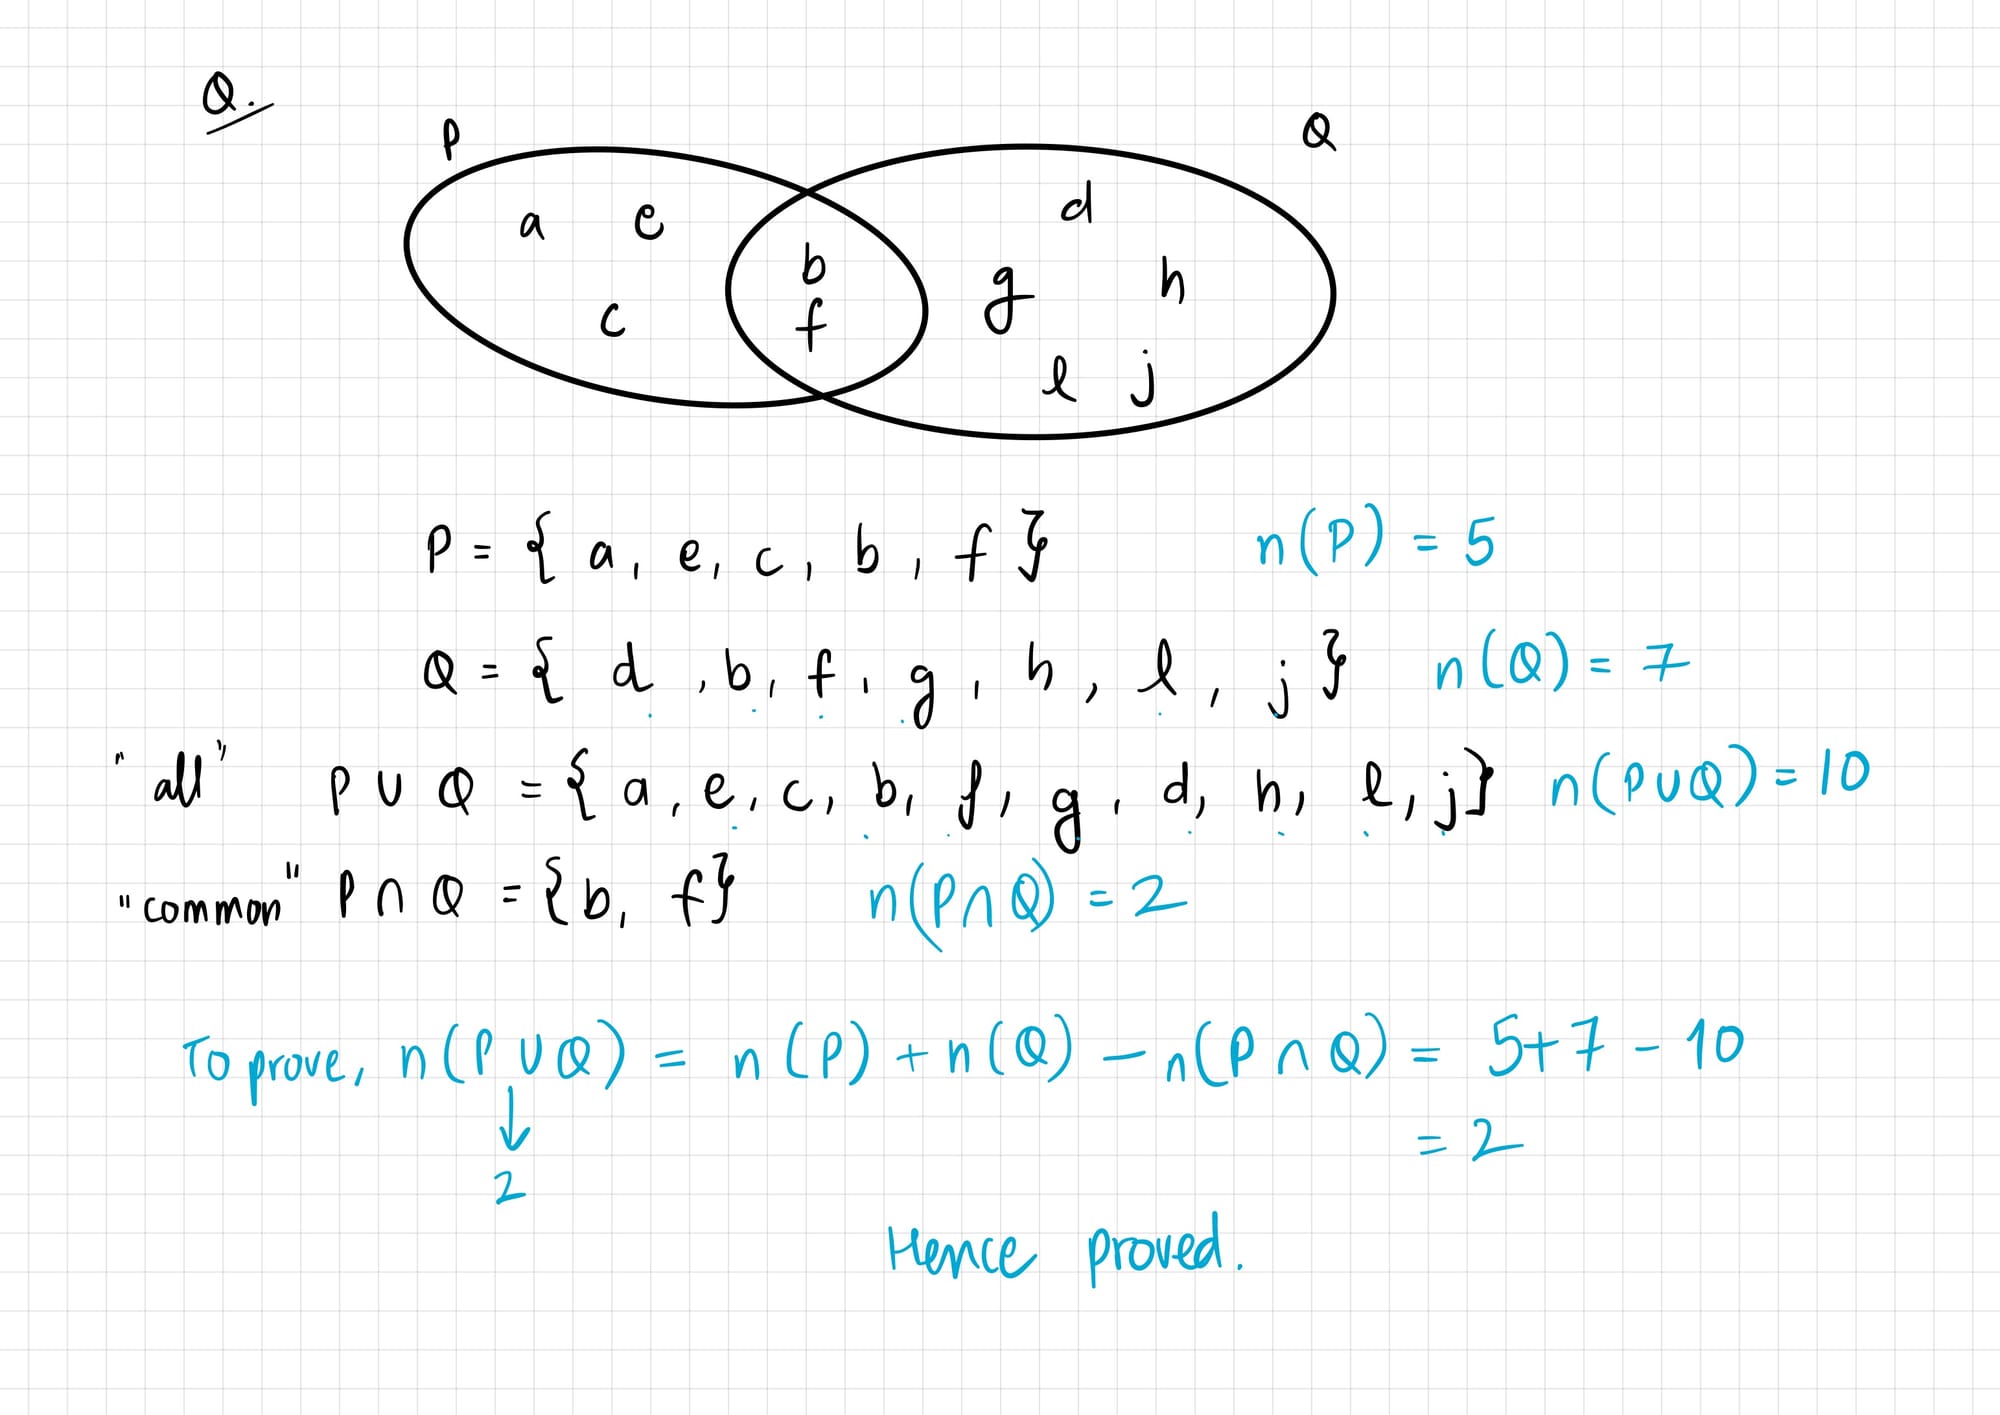 Q.
P Q
a e b d
c f g h
l j
P = { a, e, c, b, f }   n(P) = 5
Q = { d, b, f, g, h, l, j }   n(Q) = 7
"all"   P ∪ Q = { a, e, c, b, f, g, d, h, l, j }   n(P∪Q) = 10
"common"   P ∩ Q = {b, f}   n(P∩Q) = 2
To prove, n(P ∪ Q) = n(P) + n(Q) − n(P ∩ Q) = 5+7 − 10
↓ = 2
2
Hence proved.